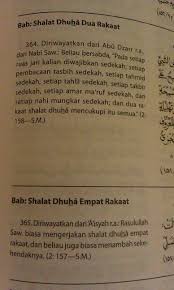 Bab: Shalat Dhuhâ Dua Rakaat
364. Diriwayatkan dari Abû Dzarr r.a.,
dari Nabi Saw.: Beliau bersabda, "Pada setiap
ruas jari kalian diwajibkan sedekah, setiap
pembacaan tasbih sedekah, setiap tahmid
sedekah, setiap tahlîl sedekah, setiap takbir
sedekah, setiap amar ma'ruf sedekah, dan
setiap nahi mungkar sedekah; dan dua ra-
kaat shalat dhuhâ mencukupi itu semua." (2:
158—S.M.)
Bab: Shalat Dhuhâ Empat Rakaat
365. Diriwayatkan dari 'Âisyah r.a.: Rasulullah
Saw. biasa mengerjakan shalat dhuhâ empat
rakaat, dan beliau juga biasa menambah seke-
hendaknya. (2: 157—S.M.)